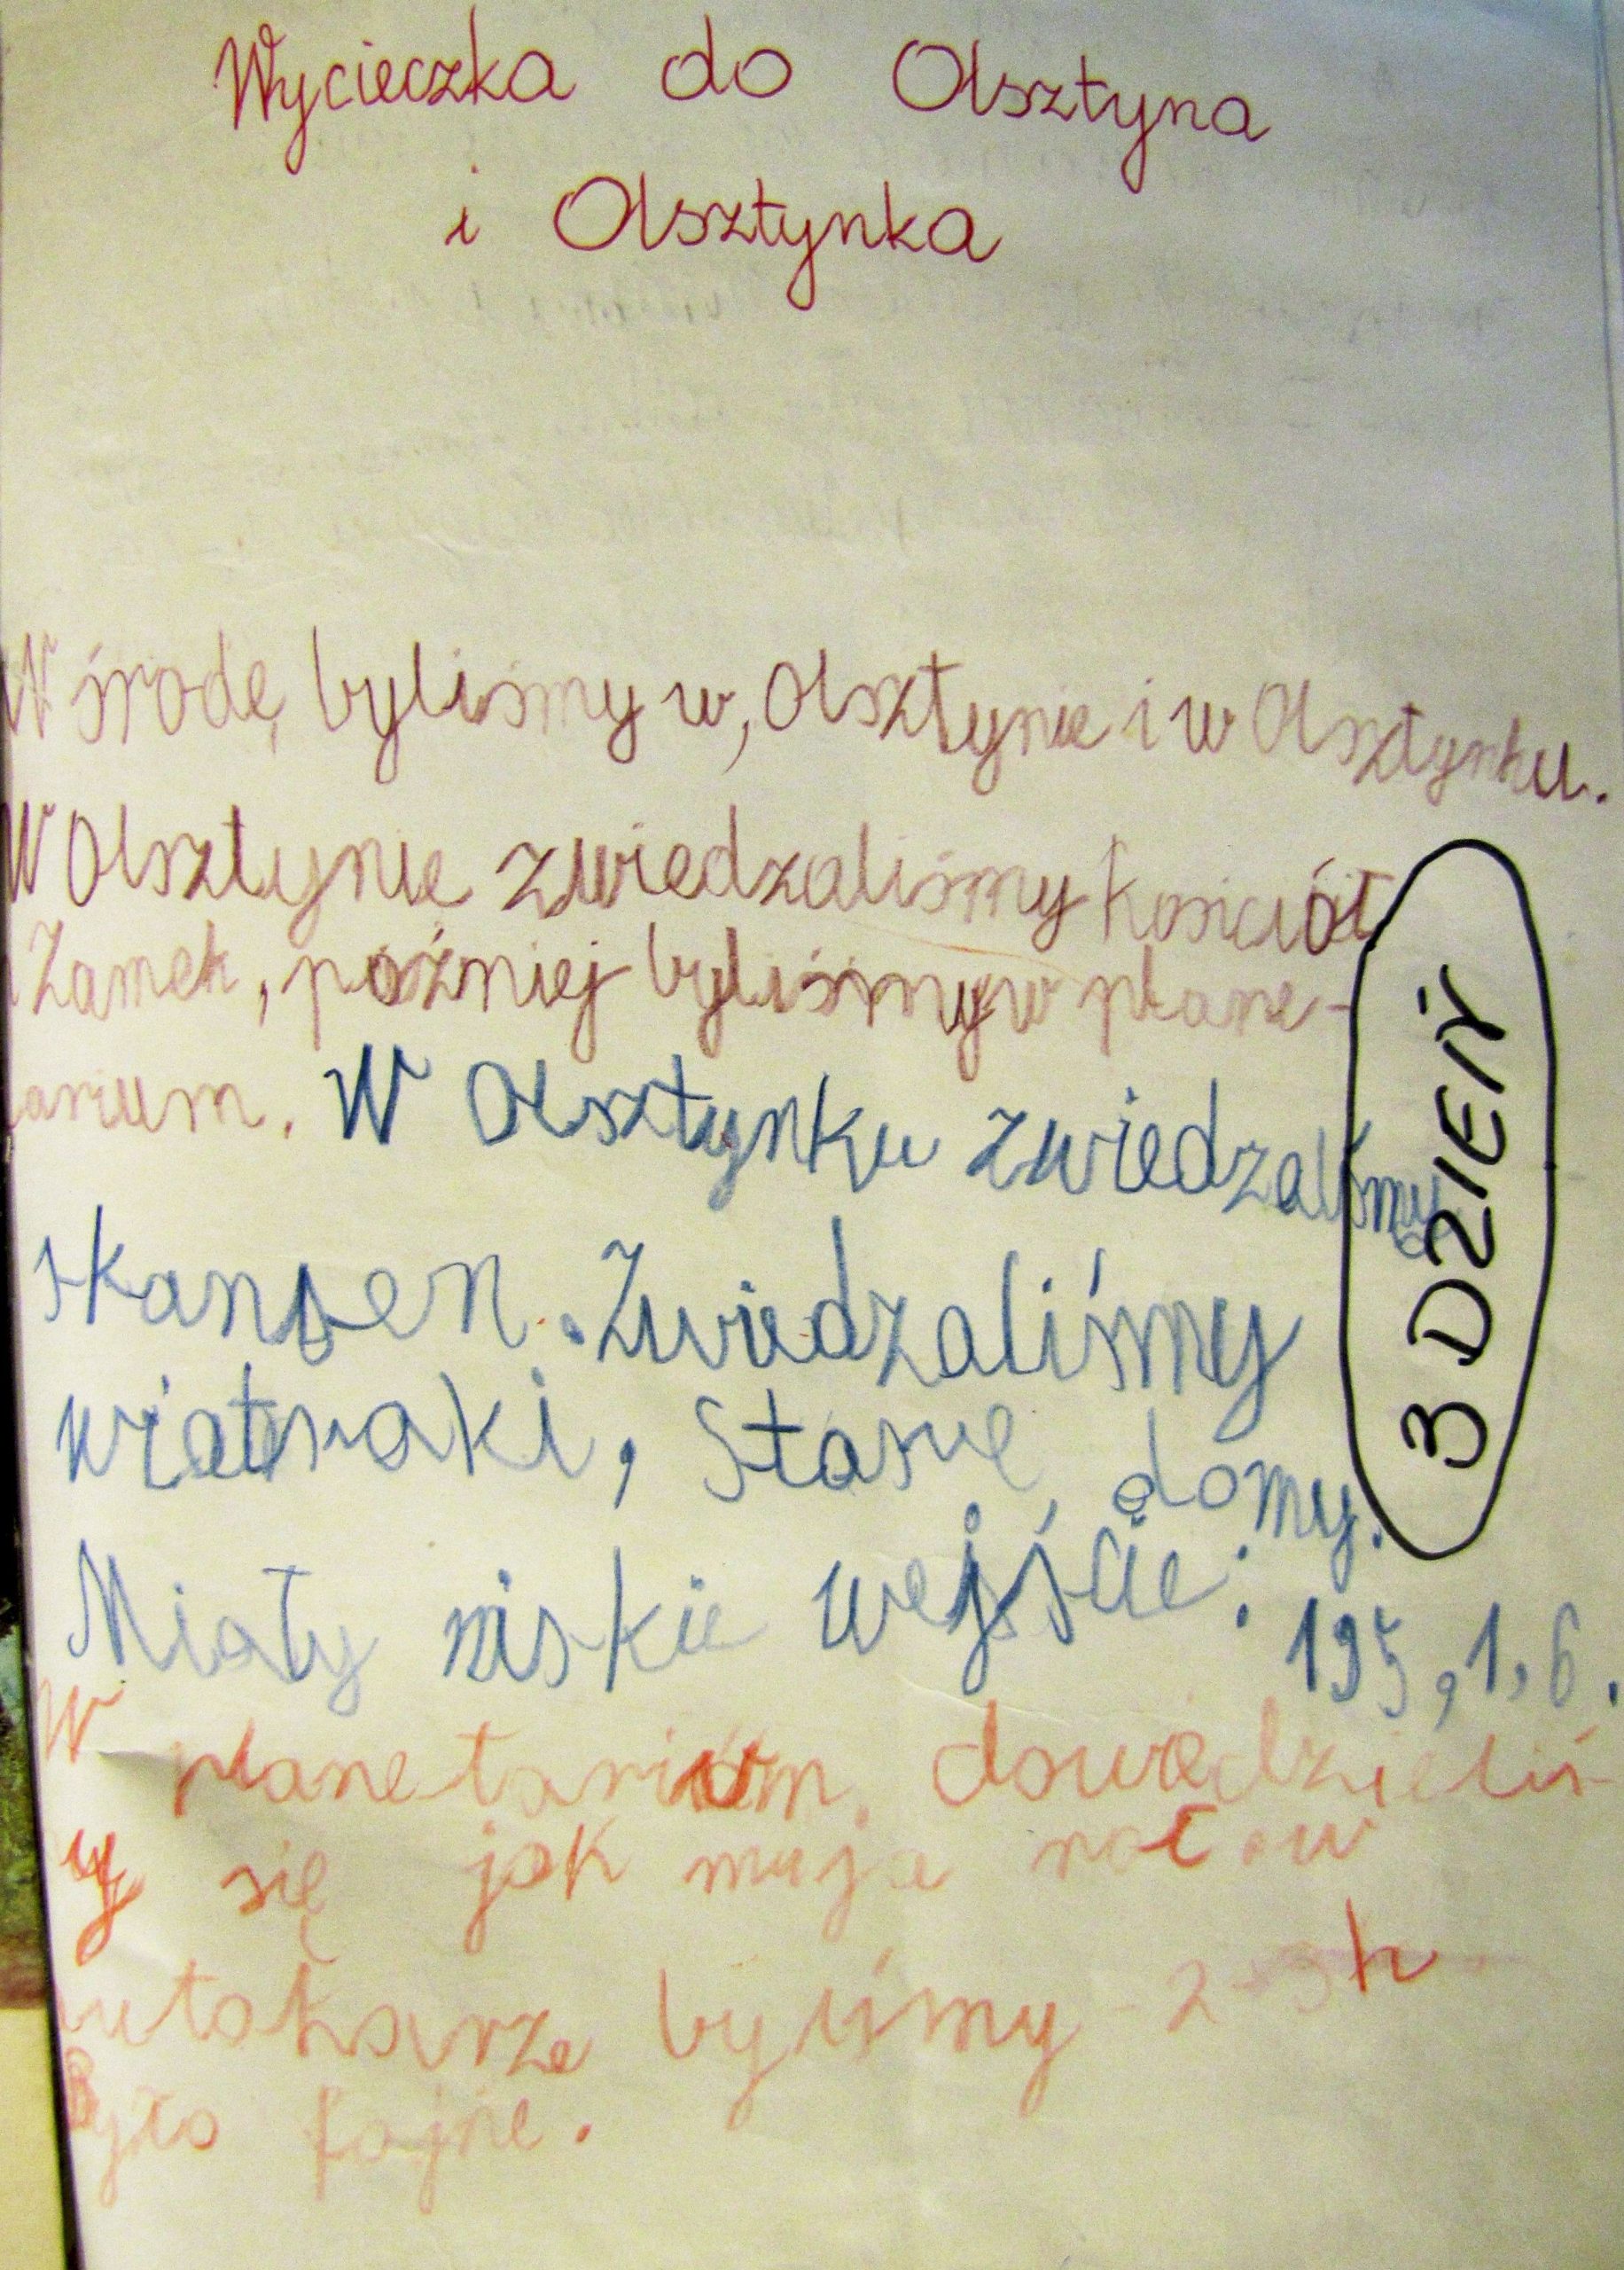 Wycieczka do Olsztyna
i Olsztynka
W środę byliśmy w, Olsztynie i w Olsztynku.
W Olsztynie zwiedzaliśmy kościół
i Zamek, pożniej byliśmy w plane-
tarium. W Olsztynku zwiedzaliśmy
skansen. Zwiedzaliśmy
wiatraki, Stare domy.
Miały niskie wejście: 195, 1,6.
W planetarium dowiedzieliś-
my się jak mija noc. w
autokarze byliśmy 2-3h
Było fajne.
3 DZIEŃ